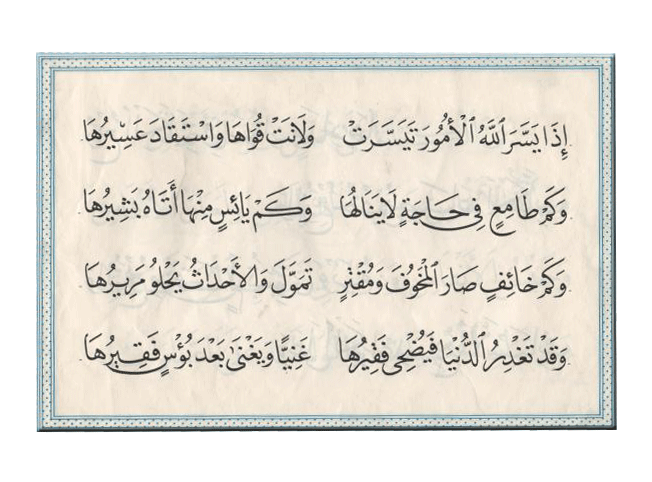 إِذَا يَسَّرَ ٱللَّهُ ٱلْأُمُورَ تَيَسَّرَتْ وَلَانَتْ قُوَاهَا وَاسْتَقَادَ عَسِيرُهَا
وَكَمْ طَامِعٍ فِي حَاجَةٍ لَا يَنَالُهَا وَكَمْ يَائِسٍ مِنْهَا أَتَاهُ بَشِيرُهَا
وَكَمْ خَائِفٍ صَارَ ٱلْمَخُوفَ وَمُقْتِرٍ تَمَوَّلَ وَالأَحْدَاثُ يَحْلُو مَرِيرُهَا
وَقَدْ تَغْدِرُ ٱلدُّنْيَا فَيُضْحِي فَقِيرُهَا غَنِيًّا وَيَغْنَىٰ بَعْدَ بُؤْسٍ فَقِيرُهَا